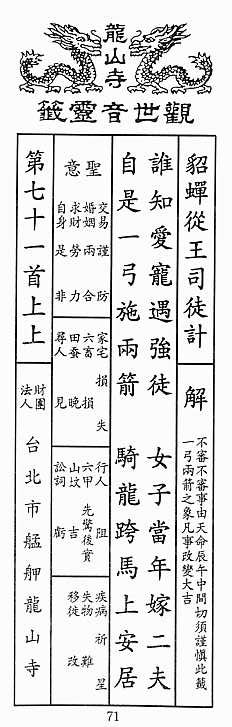 龍山寺
觀世音靈籤
貂蟬從王司徒計
解
不審不審事由天命辰午中間切須謹慎此籤
一弓兩箭之象凡事改變大吉
誰知愛寵遇強徒 女子當年嫁二夫
自是一弓施兩箭 騎龍跨馬上安居
聖意
交易 謹防
婚姻 兩合
求財 勞力
自身 是非
家宅 損失
六畜 損
田蠶 晚
尋人 見
行人 阻
六甲 先驚後實
山墳 吉
訟詞 虧
疾病 祈星
失物 難
移徙 改
第七十一首上上
財團法人 台北市艋舺龍山寺
71